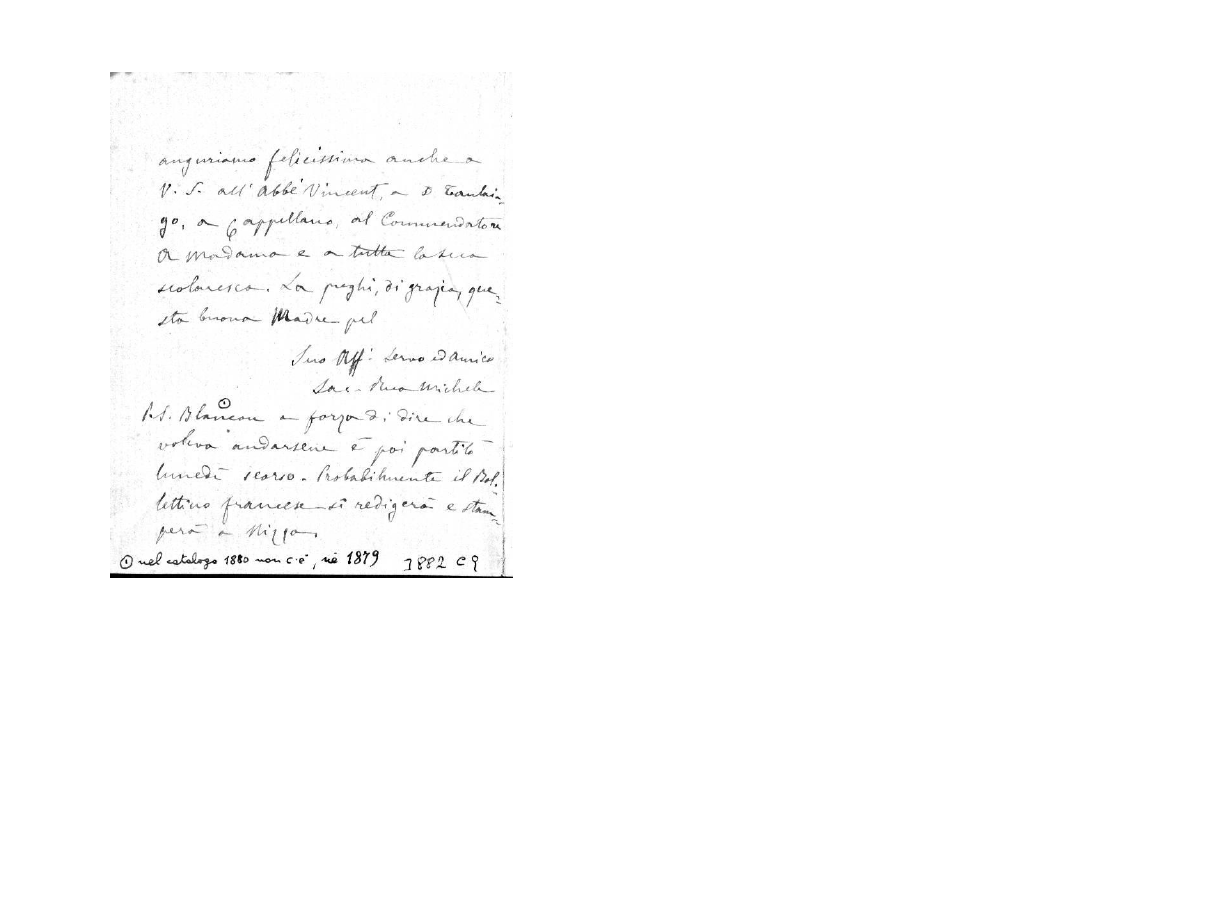 auguriamo felicissima anche a
V. S. all' Abbé Vincent, a D
go, a Cappellano, al Commendatore
a Madama e a tutta la sua
scolaresca. La preghi, di grazia, que-
sta buona Madre pel
Suo Aff. servo ed amico
Sac. Rua Michele
P.S. Blancon ① a forza di dire che
voleva andarsene è poi partito
lunedì scorso. Probabilmente il Bol-
lettino francese si redigerà e stam-
perà a Nizza.
① nel catalogo 1880 non c'è, nè 1879 3882 C 9